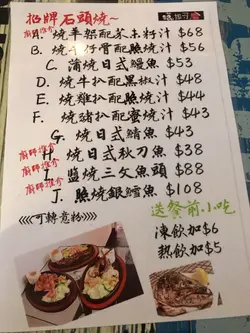 招牌石頭燒~
A. 燒羊架配芥末籽汁 $68
B. 燒牛仔骨配照燒汁 $56
C. 蒲燒日式鰻魚 $53
D. 燒牛扒配黑椒汁 $48
E. 燒雞扒配照燒汁 $44
F. 燒豬扒配蜜燒汁 $43
G. 燒日式鯖魚 $43
廚師推介
H. 燒日式秋刀魚 $38
廚師推介
I. 醬燒三文魚頭 $88
廚師推介
J. 照燒銀鱈魚 $108
《《《可轉意粉》》》
送餐前小吃
凍飲加$6
熱飲加$5